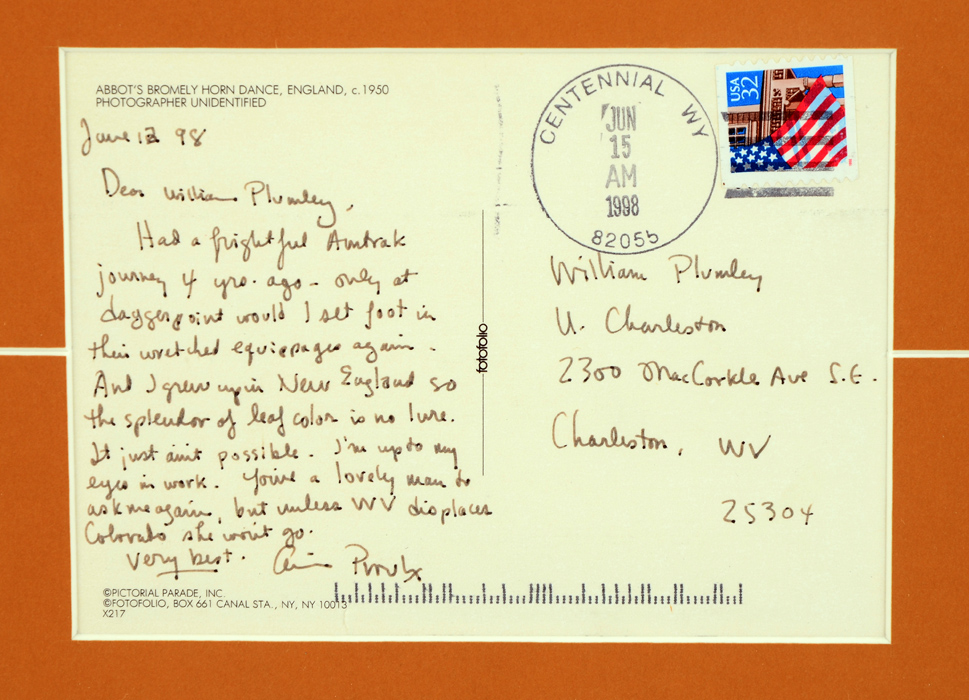 ABBOT'S BROMELY HORN DANCE, ENGLAND, c.1950
PHOTOGRAPHER UNIDENTIFIED
June 12 98
Dear William Plumley,
Had a frightful Amtrak
journey 4 yrs. ago - only at
daggerpoint would I set foot in
their wretched equippages again.
And I grew up in New England so
the splendor of leaf color is no lure.
It just ain't possible. I'm up to my
eyes in work. You're a lovely man to
ask me again, but unless WV displaces
Colorado she won't go.
Very best. Annie Proulx
©PICTORIAL PARADE, INC.
©FOTOFOLIO, BOX 661 CANAL STA., NY, NY 10013
X217
fotofolio
CENTENNIAL WY
JUN
15
AM
1998
82055
USA
32
William Plumley
U. Charleston
2300 MacCorkle Ave S.E.
Charleston, WV
25304